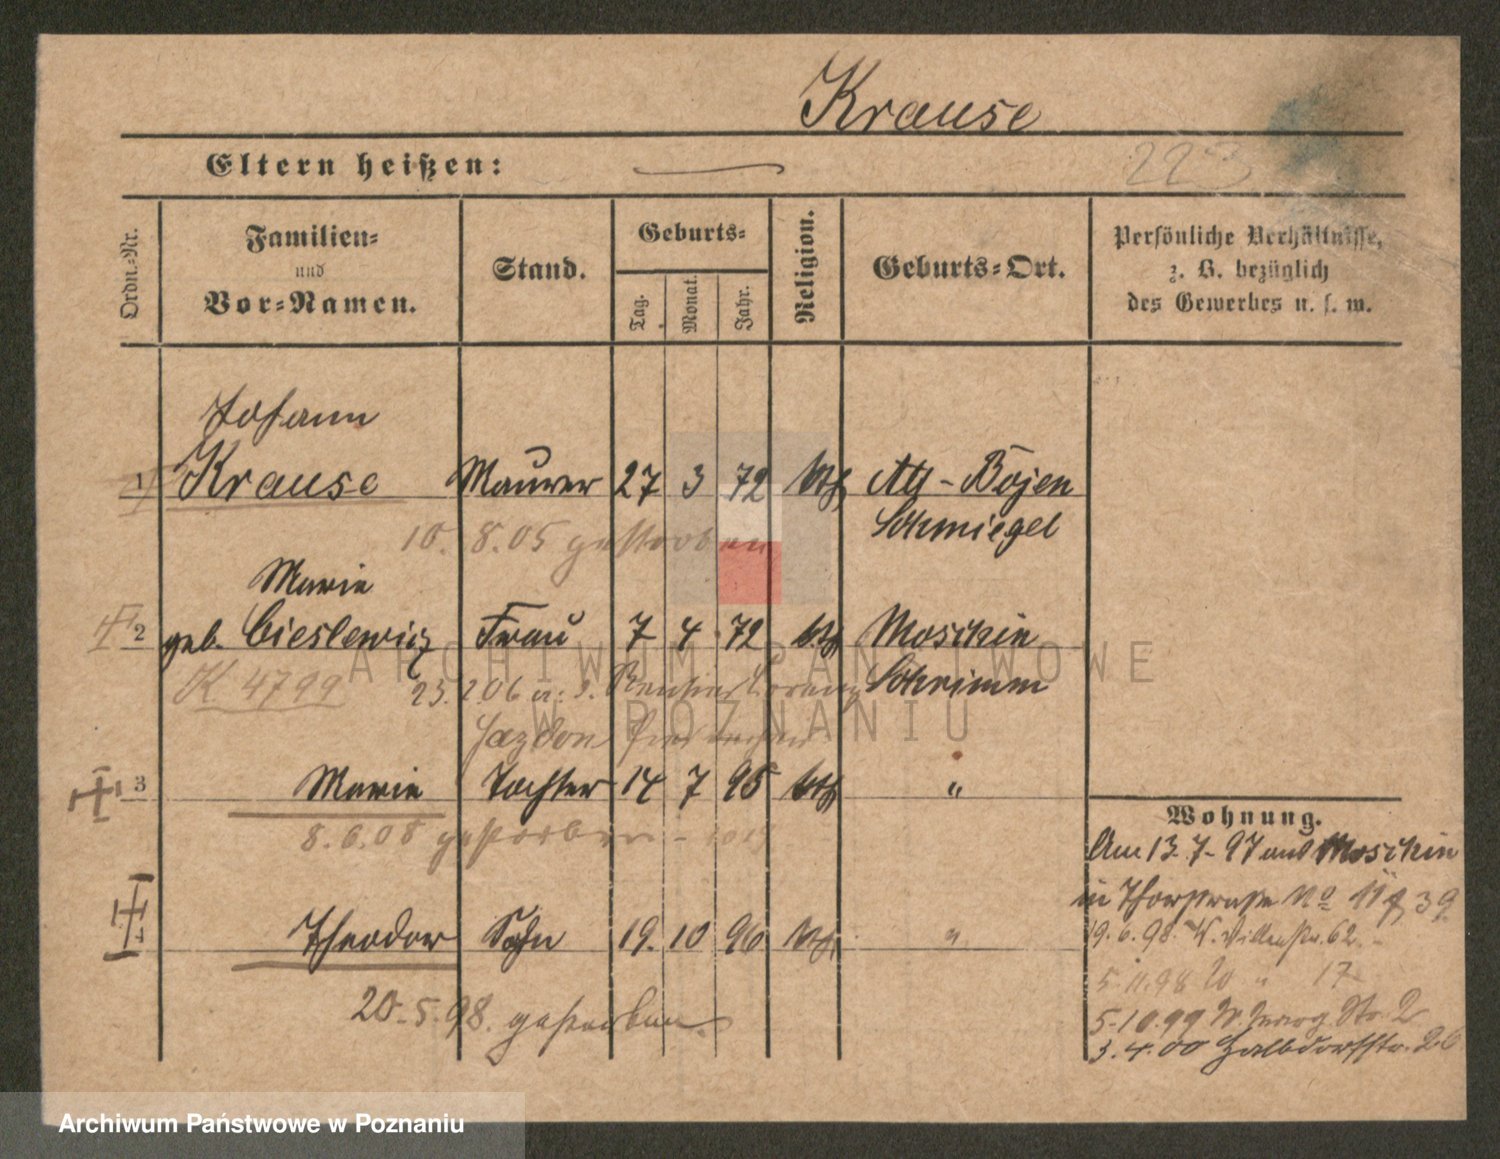 Krause
Eltern heißen:
223
Ordn.-Nr.
Familien-
und
Vor-Namen.
Stand.
Geburts-
Tag.
Monat.
Jahr.
Religion.
Geburts-Ort.
Persönliche Verhältnisse,
z. B. bezüglich
des Gewerbes u. s. w.
Johann
1 Krause Maurer 27 3 72 kth Alt-Bojen
Schmiegel
10. 8.05 gestorben
Marie
2 geb. Cieslewicz Frau 7 4 72 kth Moschin
Schrimm
K 4799 23.2.06 a. d.
3 Marie Tochter 14 7 95 kth "
8.6.08 gestorben
4 Theodor Sohn 19. 10 96 kth "
20.5.98. gestorben.
Wohnung.
Am 13.7.97 aus Moschin
in Thorstraße No 11
19.6.98. W. 62.
5.11.98 " 17
5.10.99 Str. 2
3.4.00 Halbdorfstr. 26
ARCHIWUM PAŃSTWOWE
W POZNANIU
Archiwum Państwowe w Poznaniu